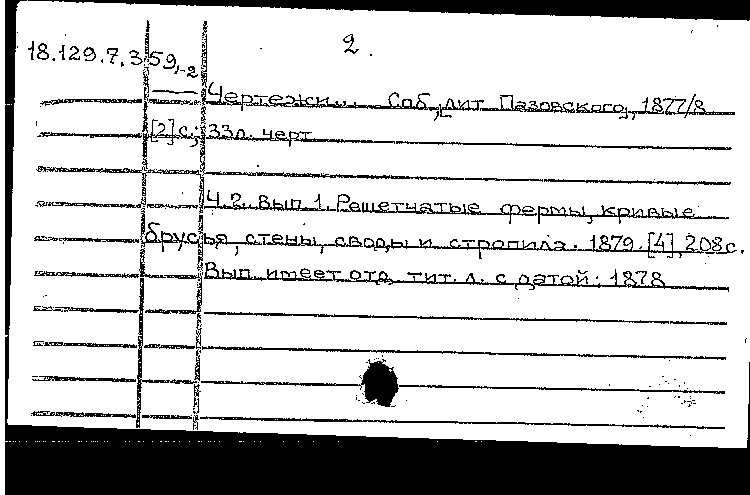 2.
18.129.7.359,-2
— Чертежи... Спб, лит. Пазовского, 1877/8
[2] с.; 33 л. черт
Ч. 2. Вып. 1. Решетчатые фермы, кривые
брусья, стены, своды и стропила. 1879. [4], 208 с.
Вып. имеет отд. тит. л. с датой: 1878